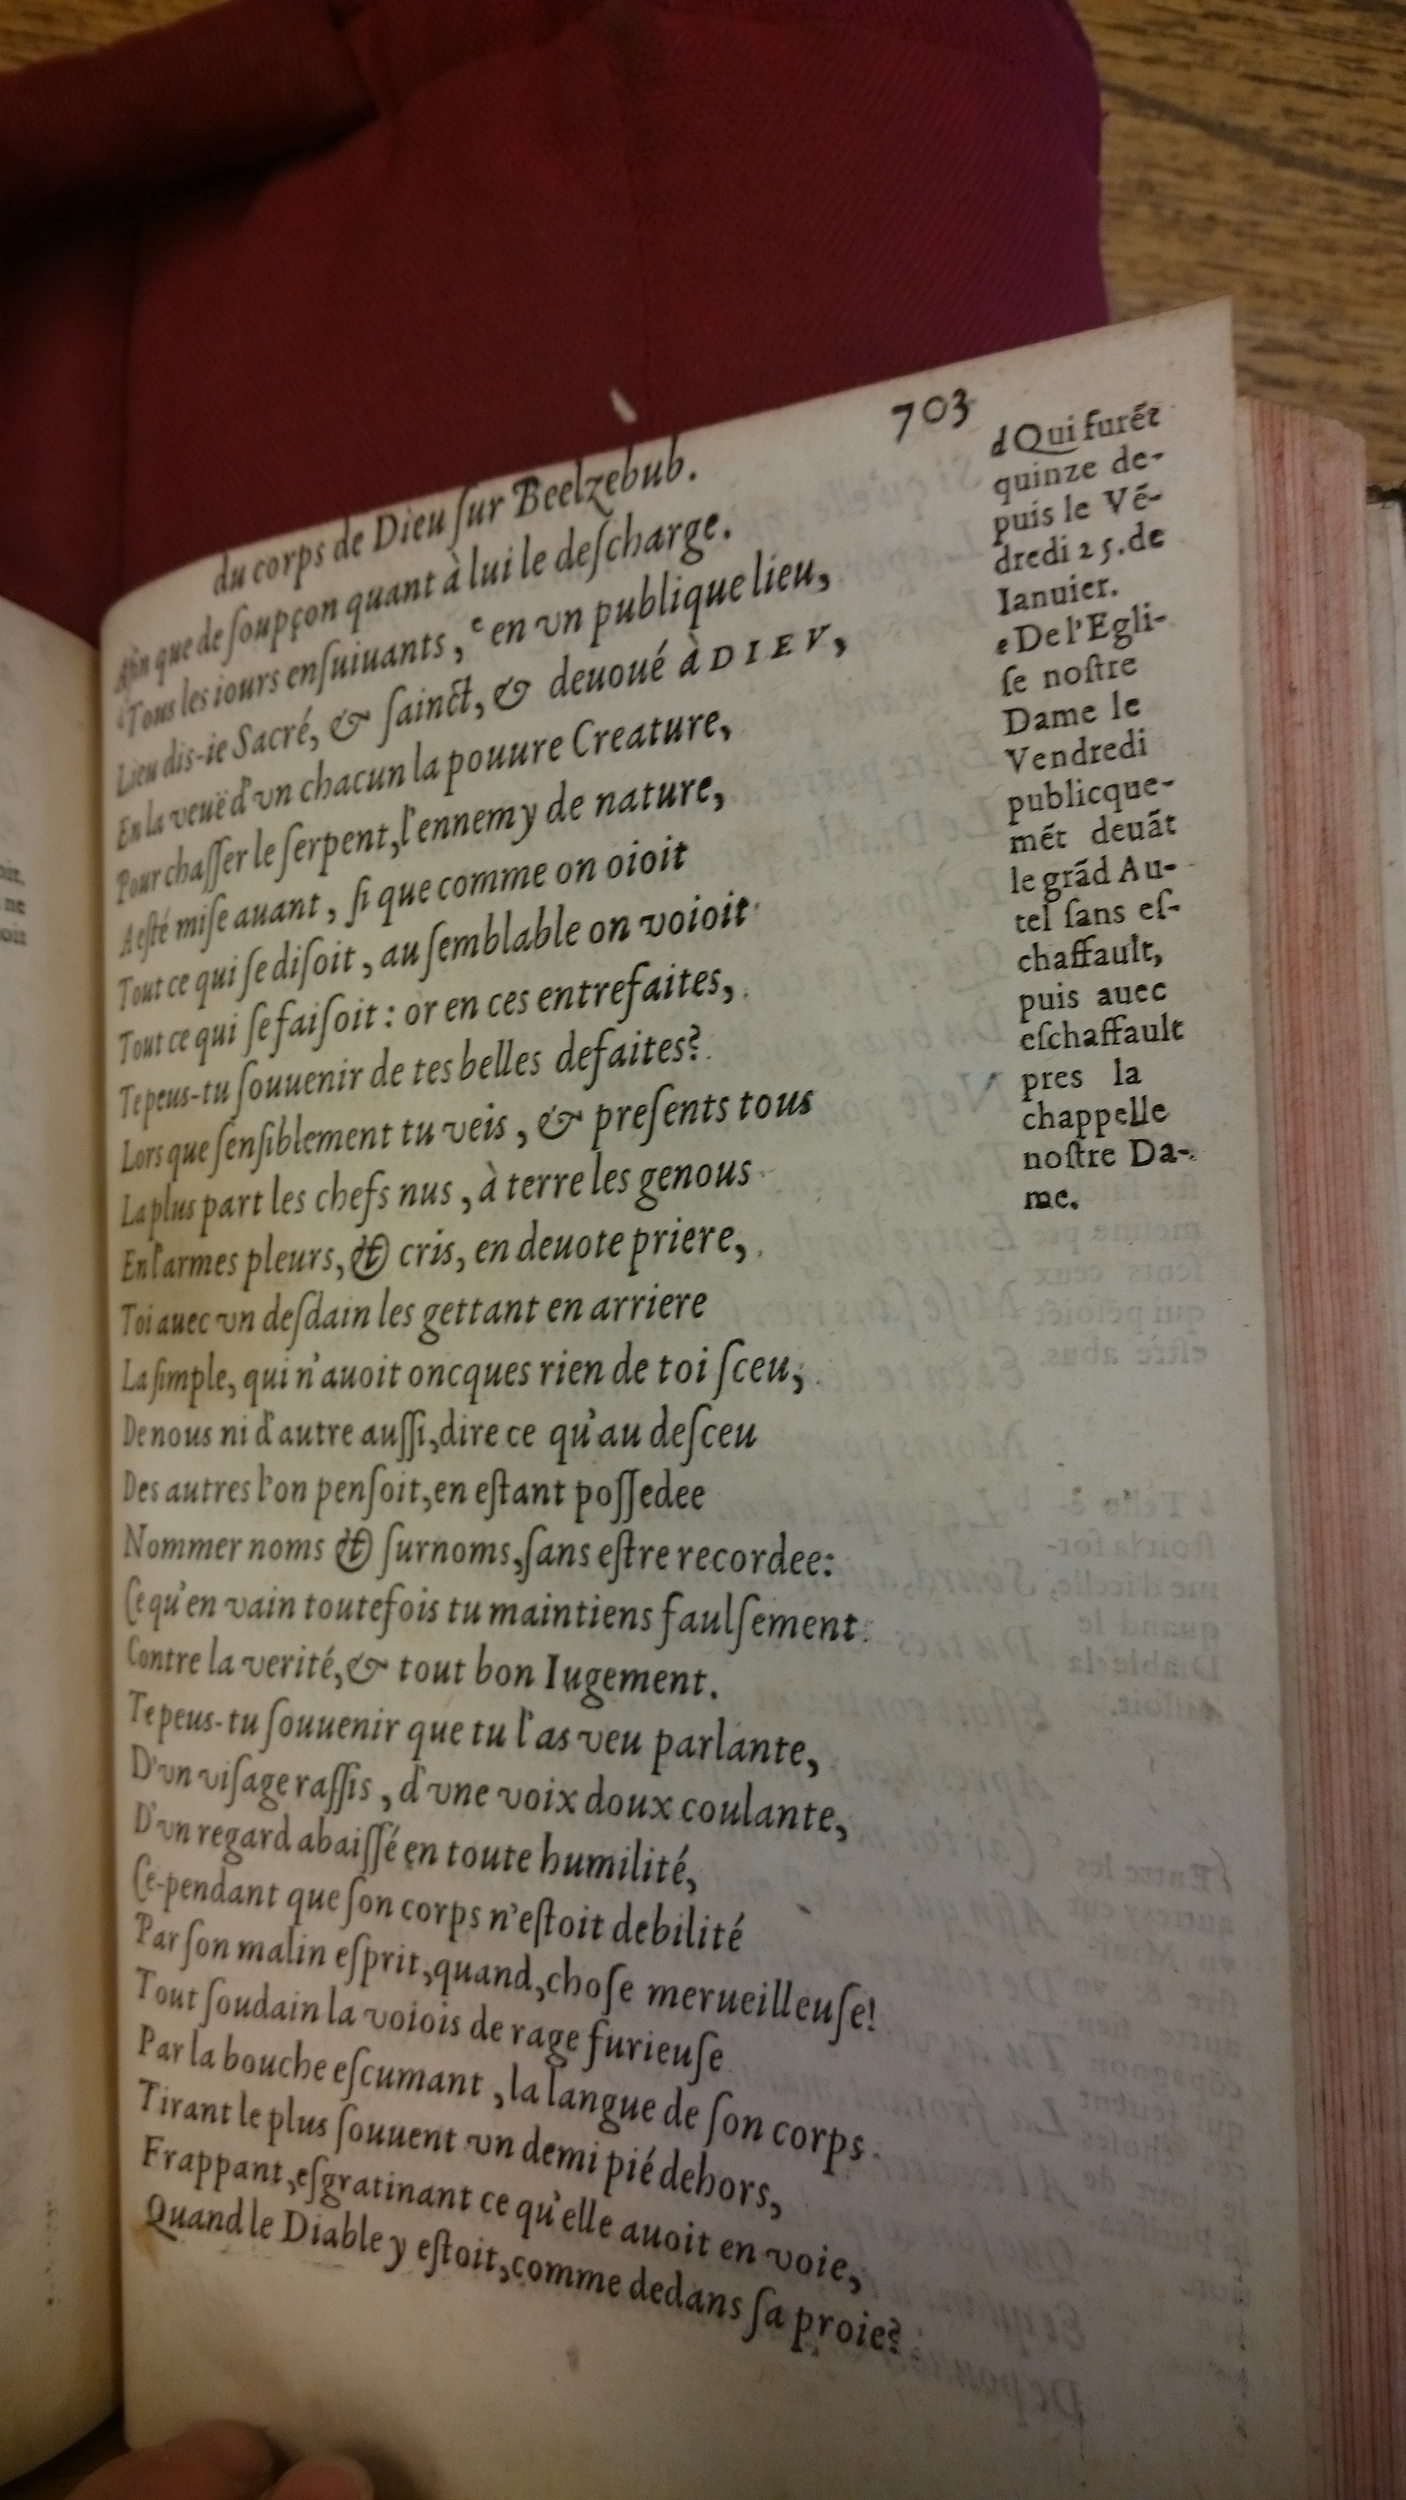 703
du corps de Dieu ſur Beelzebub.
Afin que de ſoupçon quant à lui le deſcharge.
dTous les iours enſuiuants, e en vn publique lieu,
Lieu dis-ie Sacré, & ſainct, & deuoué à DIEV,
En la veuë d'vn chacun la pouure Creature,
Pour chaſſer le ſerpent, l'ennemy de nature,
A eſté miſe auant, ſi que comme on oioit
Tout ce qui ſe diſoit, au ſemblable on voioit
Tout ce qui ſe faiſoit : or en ces entrefaites,
Te peus-tu ſouuenir de tes belles defaites?
Lors que ſenſiblement tu veis, & preſents tous
La plus part les chefs nus, à terre les genous
En l'armes pleurs, & cris, en deuote priere,
Toi auec vn deſdain les gettant en arriere
La ſimple, qui n'auoit oncques rien de toi ſceu,
De nous ni d'autre auſſi, dire ce qu'au deſceu
Des autres l'on penſoit, en eſtant poſſedee
Nommer noms & ſurnoms, ſans eſtre recordee:
Ce qu'en vain toutefois tu maintiens faulſement
Contre la verité, & tout bon Iugement.
Te peus-tu ſouuenir que tu l'as veu parlante,
D'vn viſage raſſis, d'vne voix doux coulante,
D'vn regard abaiſſé en toute humilité,
Ce-pendant que ſon corps n'eſtoit debilité
Par ſon malin eſprit, quand, choſe merueilleuſe!
Tout ſoudain la voiois de rage furieuſe
Par la bouche eſcumant, la langue de ſon corps
Tirant le plus ſouuent vn demi pié dehors,
Frappant, eſgratinant ce qu'elle auoit en voie,
Quand le Diable y eſtoit, comme dedans ſa proie?
d Qui furẽt
quinze de-
puis le Vẽ-
dredi 25. de
Ianuier.
e De l'Egli-
ſe noſtre
Dame le
Vendredi
publicque-
mẽt deuãt
le grãd Au-
tel ſans eſ-
chaffault,
puis auec
eſchaffault
pres la
chappelle
noſtre Da-
me.